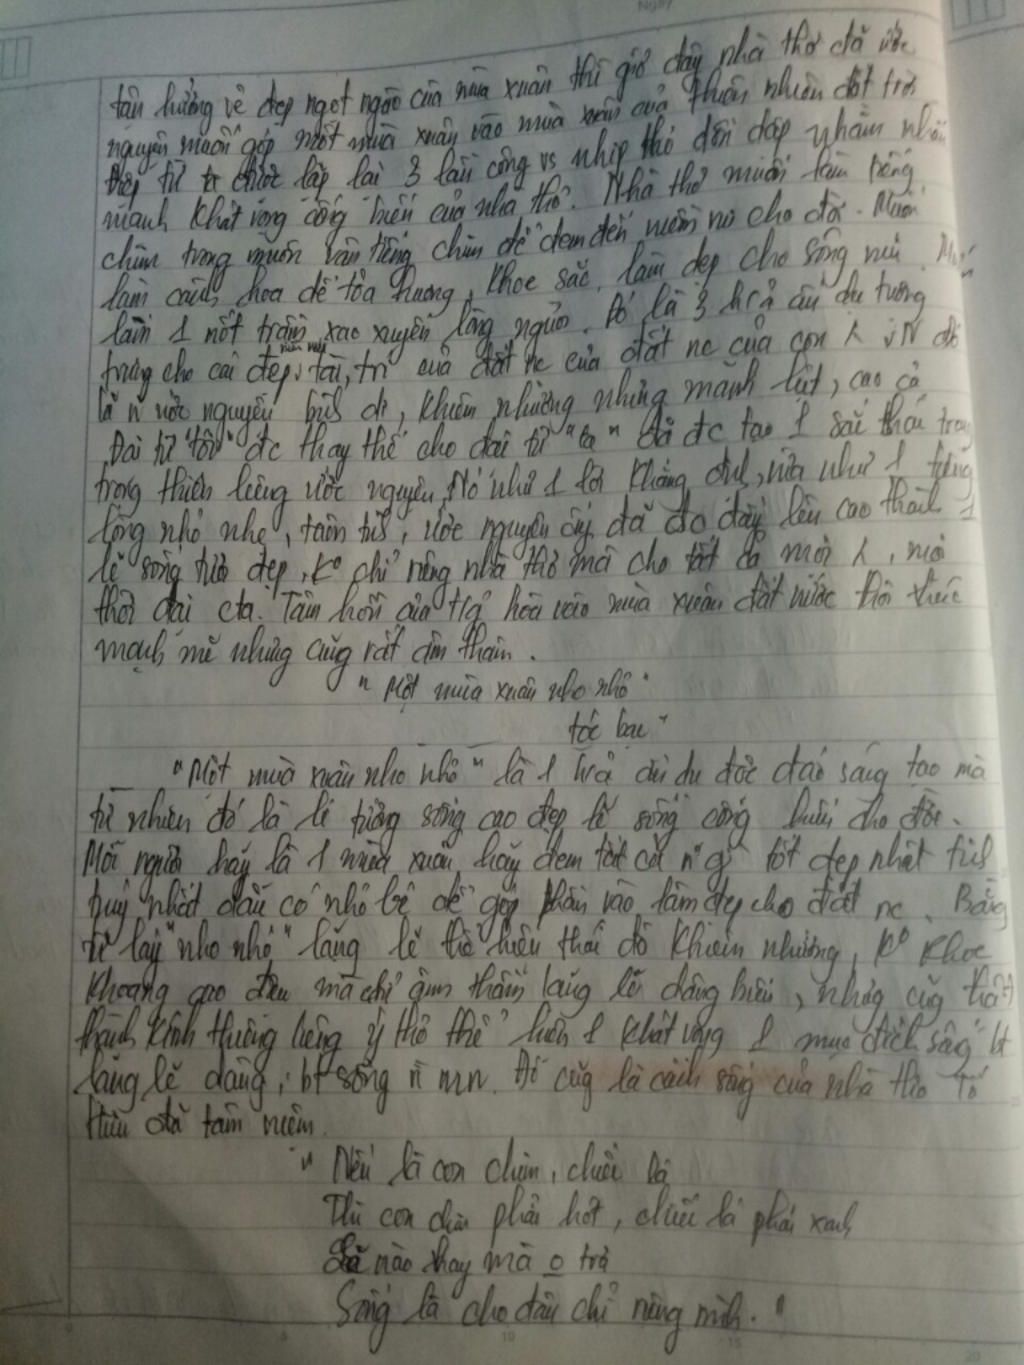 tân hưởng vẻ đẹp ngọt ngào của mùa xuân thì giờ đây nhà thơ đã ước
nguyện muốn góp một mùa xuân vào mùa xuân của thiên nhiên đất trời
điệp từ ta được lặp lại 3 lần cộng vs nhịp thơ dồn dập nhằm nhấn
mạnh khát vọng cống hiến của nhà thơ. Nhà thơ muốn làm tiếng
chim trong muôn vàn tiếng chim để đem đến niềm vui cho đời. Muốn
làm cành hoa để tỏa hương, khoe sắc, làm đẹp cho sông núi. Muốn
làm 1 nốt trầm xao xuyến lòng người. Đó là 3 h/ả ẩn dụ tượng
trưng cho cái đẹp, niềm vui, tài, trí của đất nc của đất nc của con VN đó
là n ước nguyện bình dị, khiêm nhường nhưng mãnh liệt, cao cả
Đại từ "tôi" đc thay thế cho đại từ "ta" đã đc tạo 1 sắc thái trang
trọng thiêng liêng ước nguyện, Nó như 1 lời khẳng định, vừa như 1 tiếng
lòng nhỏ nhẹ, tâm tình, ước nguyện ấy đã đc đẩy lên cao thành 1
lẽ sống tươi đẹp, ko chỉ riêng nhà thơ mà cho tất cả mọi, mọi
thời đại cta. Tâm hồn của t/g hòa vào mùa xuân đất nước thổn thức
mạnh mẽ nhưng cũng rất âm thầm.
" Một mùa xuân nho nhỏ
tóc bạc "
"Một mùa xuân nho nhỏ" là 1 h/ả ẩn dụ độc đáo sáng tạo mà
tự nhiên đó là lí tưởng sống cao đẹp lẽ sống cống hiến cho đời.
Mỗi người hãy là 1 mùa xuân hãy đem tất cả n~ gì tốt đẹp nhất tinh
túy nhất dẫu có nhỏ bé để góp phần vào làm đẹp cho đất nc. Bằng
từ láy "nho nhỏ" lặng lẽ thể hiện thái độ khiêm nhường, ko khoe
khoang cao điệu mà chỉ âm thầm lặng lẽ dâng hiến, nhưng cũg
thành kính thiêng liêng ý thơ thể hiện 1 khát vọng 1 mục đích sống bt
lặng lẽ dâng, bt sống vì mn. Đó cũg là cách sống của nhà thơ Tố
Hữu đã tâm niệm.
" Nếu là con chim, chiếc lá
Thì con chim phải hót, chiếc lá phải xanh
Lẽ nào vay mà o trả
Sống là cho đâu chỉ riêng mình. "